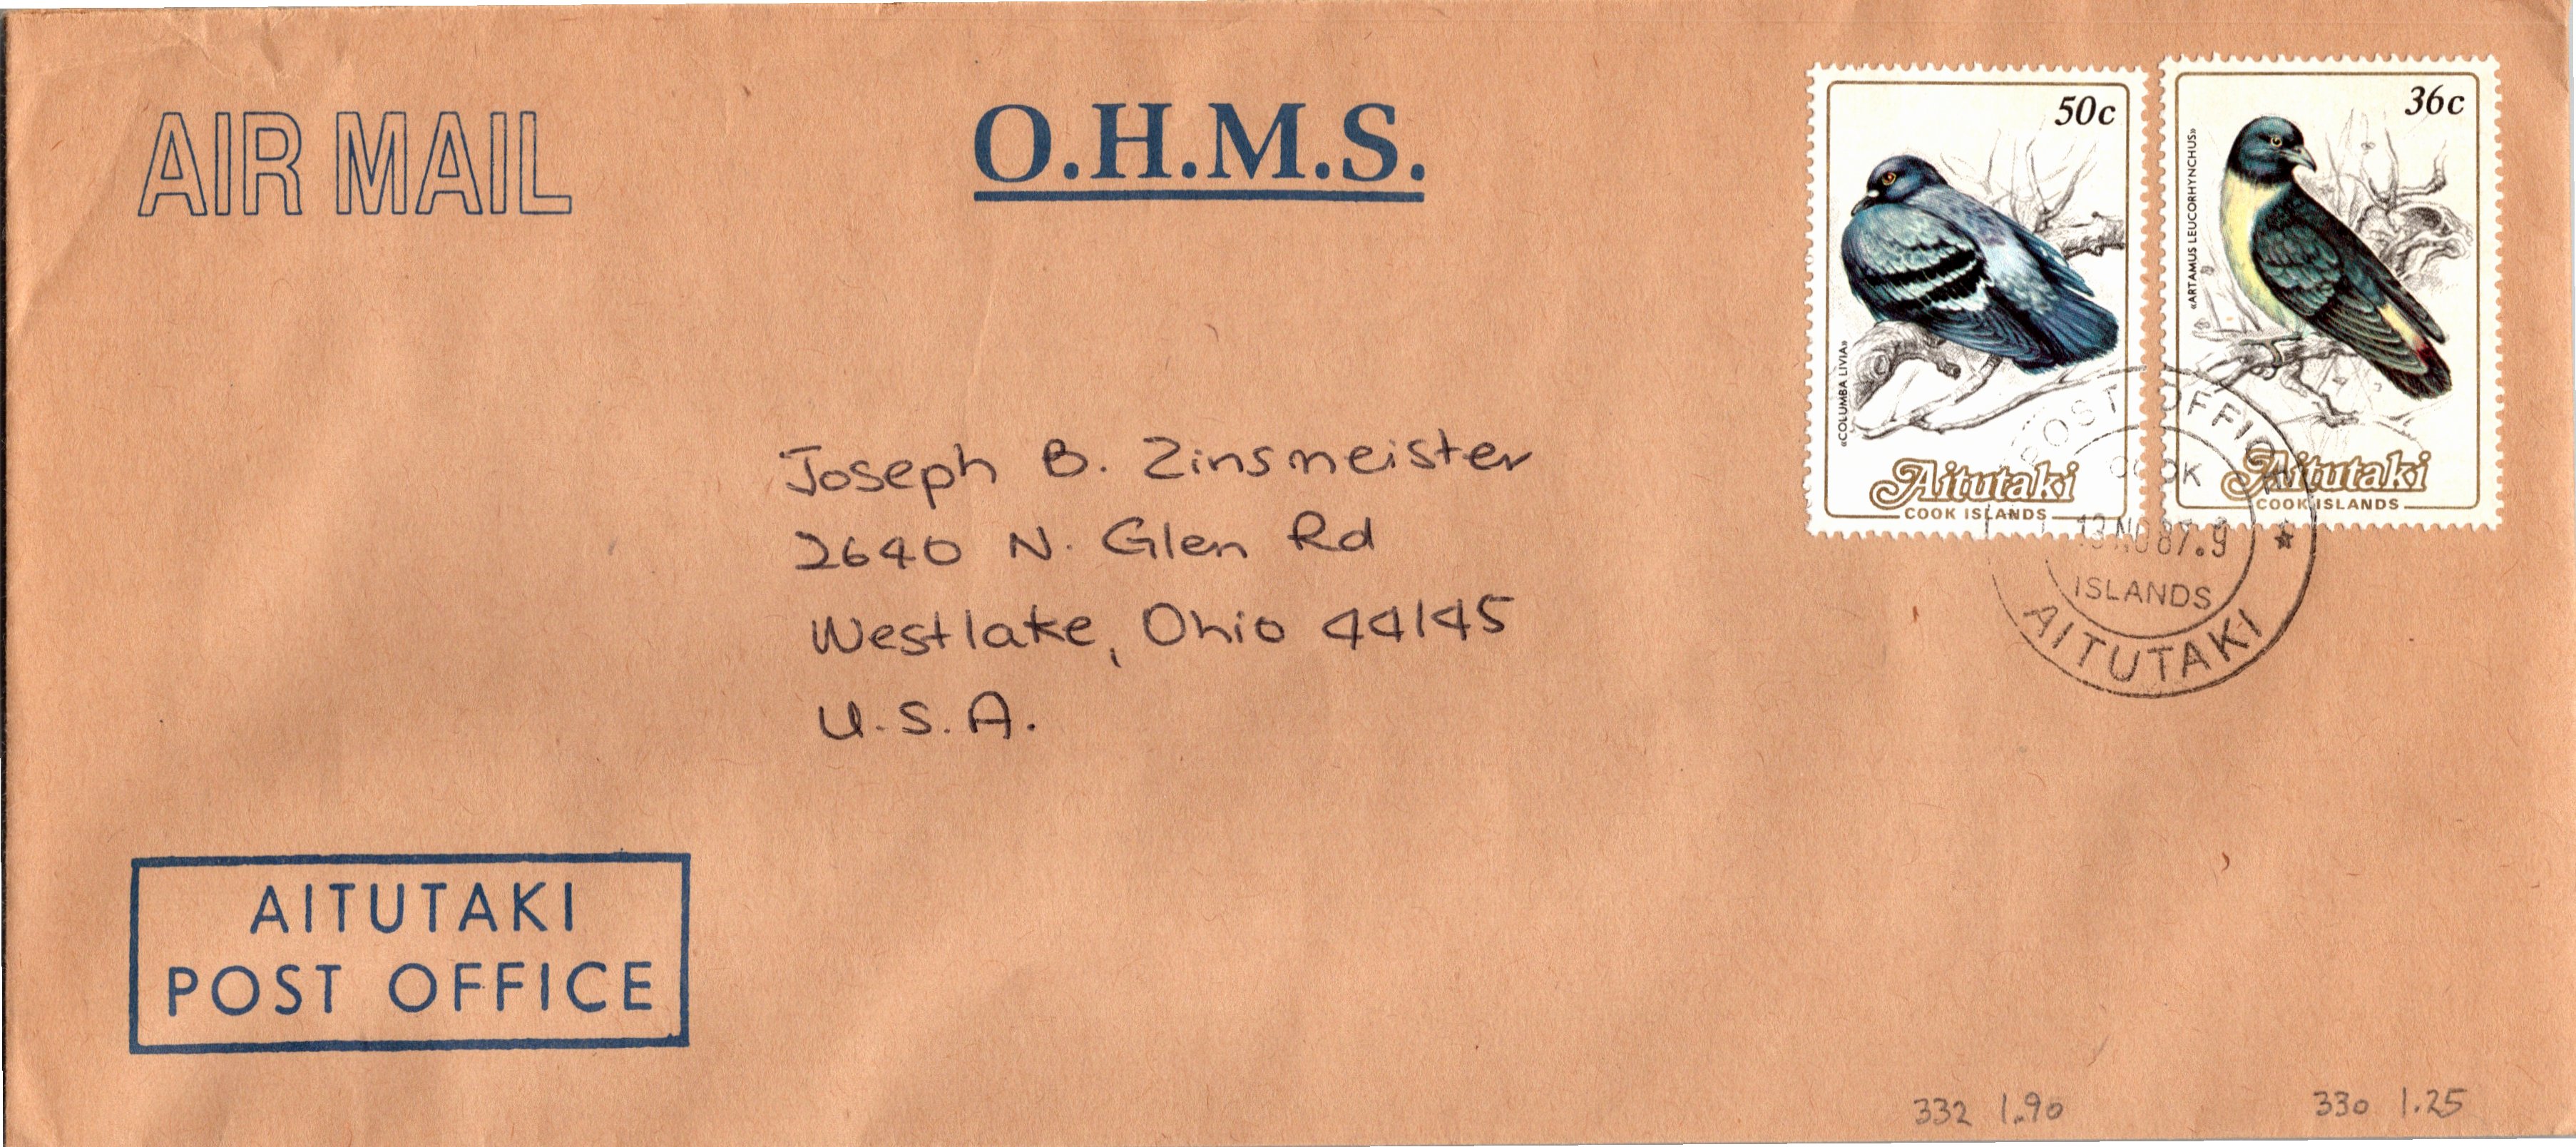 AIR MAIL
O.H.M.S.
50c
«COLUMBA LIVIA»
Aitutaki
COOK ISLANDS
36c
«ARTAMUS LEUCORHYNCHUS»
Aitutaki
COOK ISLANDS
POST OFFICE
COOK
13 NO 87.9
ISLANDS
AITUTAKI
Joseph B. Zinsmeister
2640 N. Glen Rd
Westlake, Ohio 44145
U.S.A.
AITUTAKI
POST OFFICE
332 1.90
330 1.25